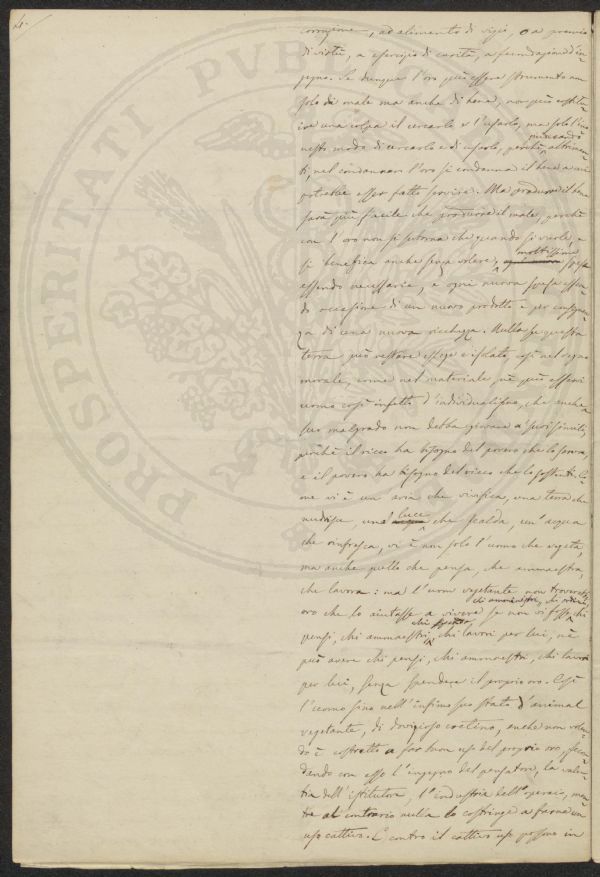 4.
corruzione, ad alimento di vizio, o a premio
di virtù, a esercizio di carità, a fecondazione d'in-
gegno. Se dunque l'oro può essere strumento non
solo di male ma anche di bene, non può costitui-
re una colpa il cercarlo e l'usarlo, ma solo l'ino-
nesto modo di cercarlo e di usarlo, perchè altrimen-
ti, nel condannar l'oro si condanna il bene a cui
potrebbe esser fatto servire. Ma produrre il bene
sarà più facile che produrre il male, perchè
con l'oro non si che quando si vuole, e
si benefica anche senza volere, moltissime spese
essendo necessarie, e ogni nuova spesa essen-
do occasione di un nuovo prodotto e per conseguen-
za di una nuova ricchezza. Nulla su questa
terra può restare e isolato, così nel regno
morale, come nel materiale, nè può esservi
uomo così infetto d'individualismo, che anche
suo malgrado non debba giovare a' suoi simili,
perchè il ricco ha bisogno del povero che lo serva,
e il povero ha bisogno del ricco che lo sostenti. Co-
me vi è un aria che vivifica, una terra che
nudrisce, una luce che scalda, un'acqua
che rinfresca, vi è non solo l'uomo che vegeta,
ma anche quello che pensa, che ammaestra,
che lavora: ma l'uom vegetante non troverebbe
chi amministri, chi ordini,
oro che lo aiutasse a vivere se non vi fosse chi
pensi, chi ammaestri, chi lavori per lui, nè
può avere chi pensi, chi ammaestri, chi lavori
per lui, senza spendere il proprio oro. Così
l'uomo sino nell'infimo suo stato d'animal
vegetante, di dovizioso cretino, anche non volen-
do è costretto a far buon uso del proprio oro, fecon-
dando con esso l'ingegno del pensatore, la valen-
tia dell'istitutore, l'industria dell'operaio, men-
tre al contrario nulla lo costringe a farne un
uso cattivo. E contro il cattivo uso possono in